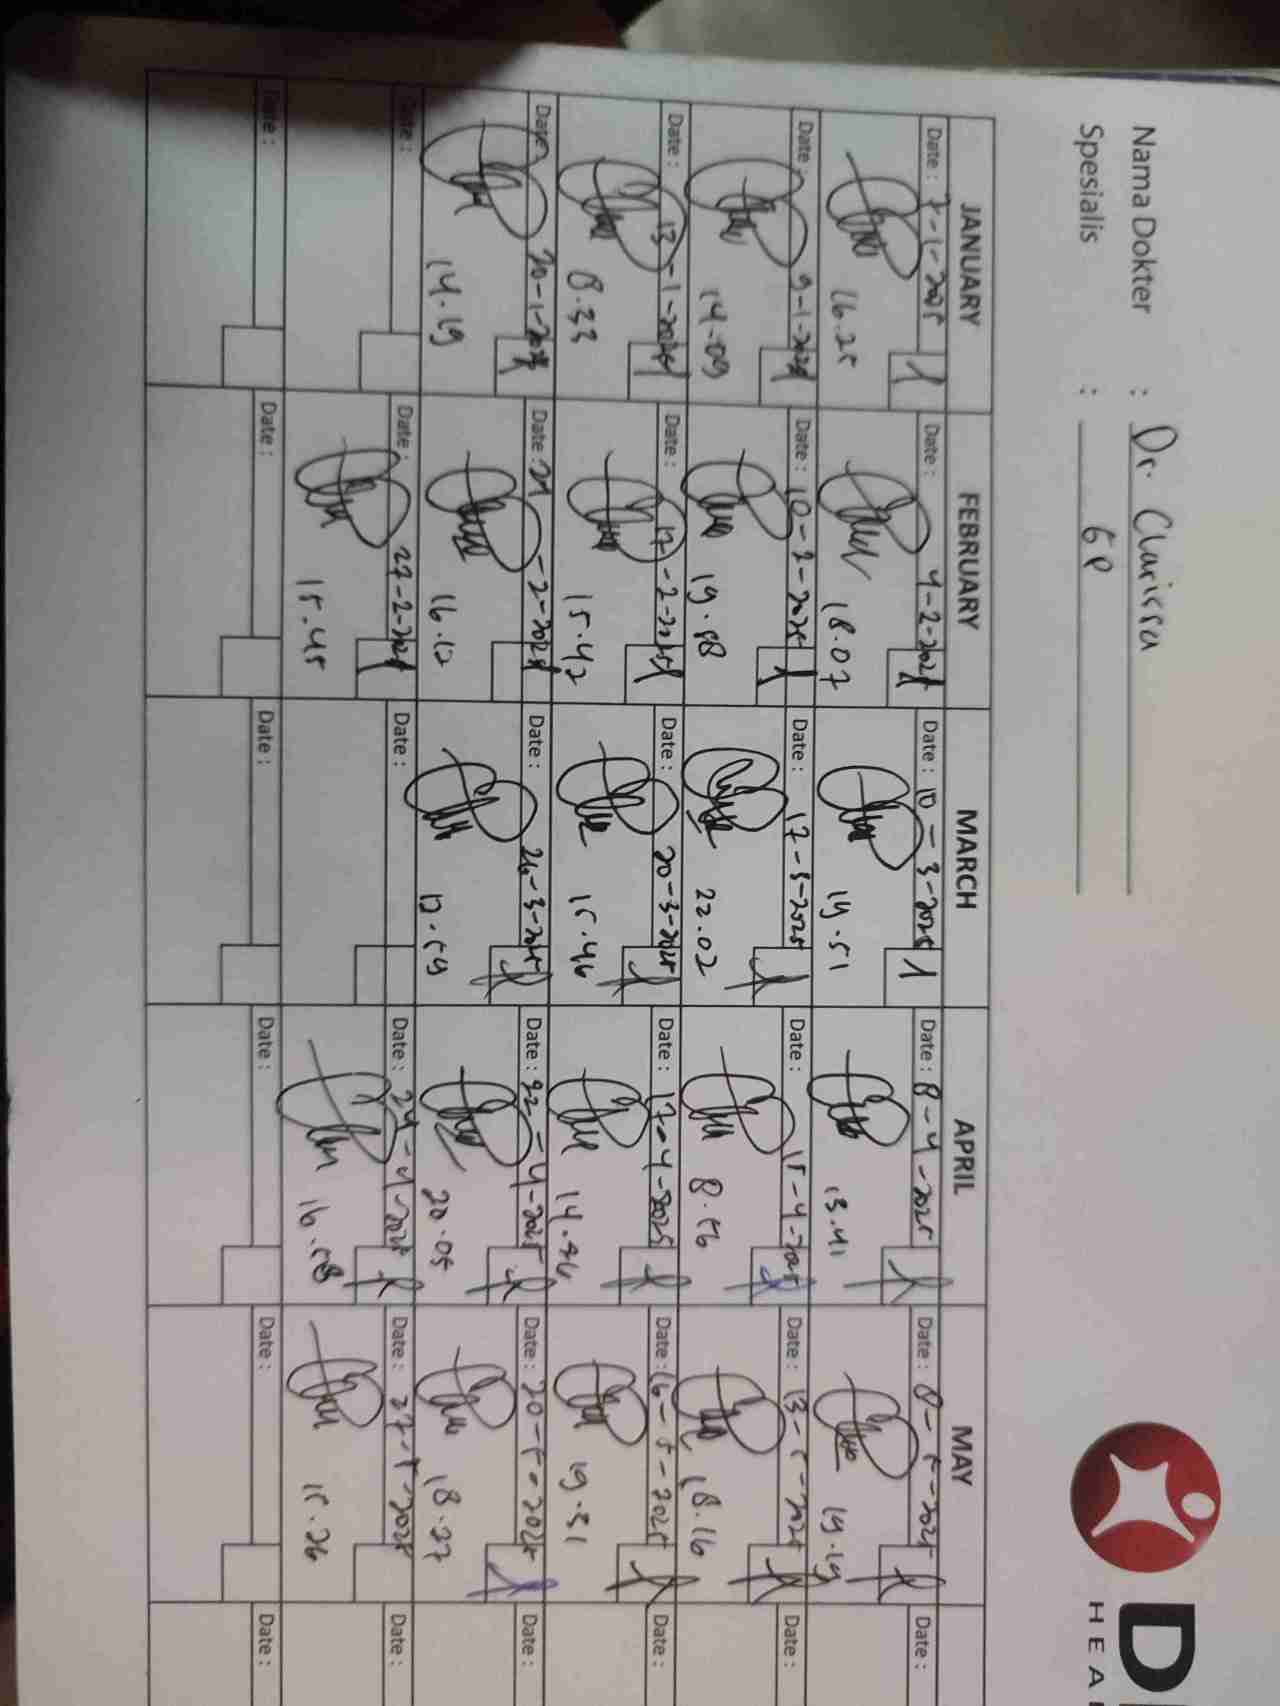 Nama Dokter : Dr. Clarissa
Spesialis : GP
D
HEA
JANUARY FEBRUARY MARCH APRIL MAY
Date : 7-1-2025 Date : 4-2-2025 Date : 10-3-2025 Date : 8-4-2025 Date : 8-5-2025 Date :
16.25 18.07 19.51 13.41 19.19
Date : 9-1-2025 Date : 10-2-2025 Date : 17-3-2025 Date : 15-4-2025 Date : 13-5-2025 Date :
14.09 19.58 22.02 8.56 18.16
Date : 13-1-2025 Date : 17-2-2025 Date : 20-3-2025 Date : 17-4-2025 Date : 16-5-2025 Date :
8.33 15.42 15.46 14.46 19.31
Date : 20-1-2025 Date : 21-2-2025 Date : 26-3-2025 Date : 22-4-2025 Date : 20-5-2025 Date :
14.19 16.12 12.59 20.05 18.27
Date : Date : 27-2-2025 Date : Date : 24-4-2025 Date : 27-5-2025 Date :
15.45 16.58 15.26
Date : Date : Date : Date : Date : Date :